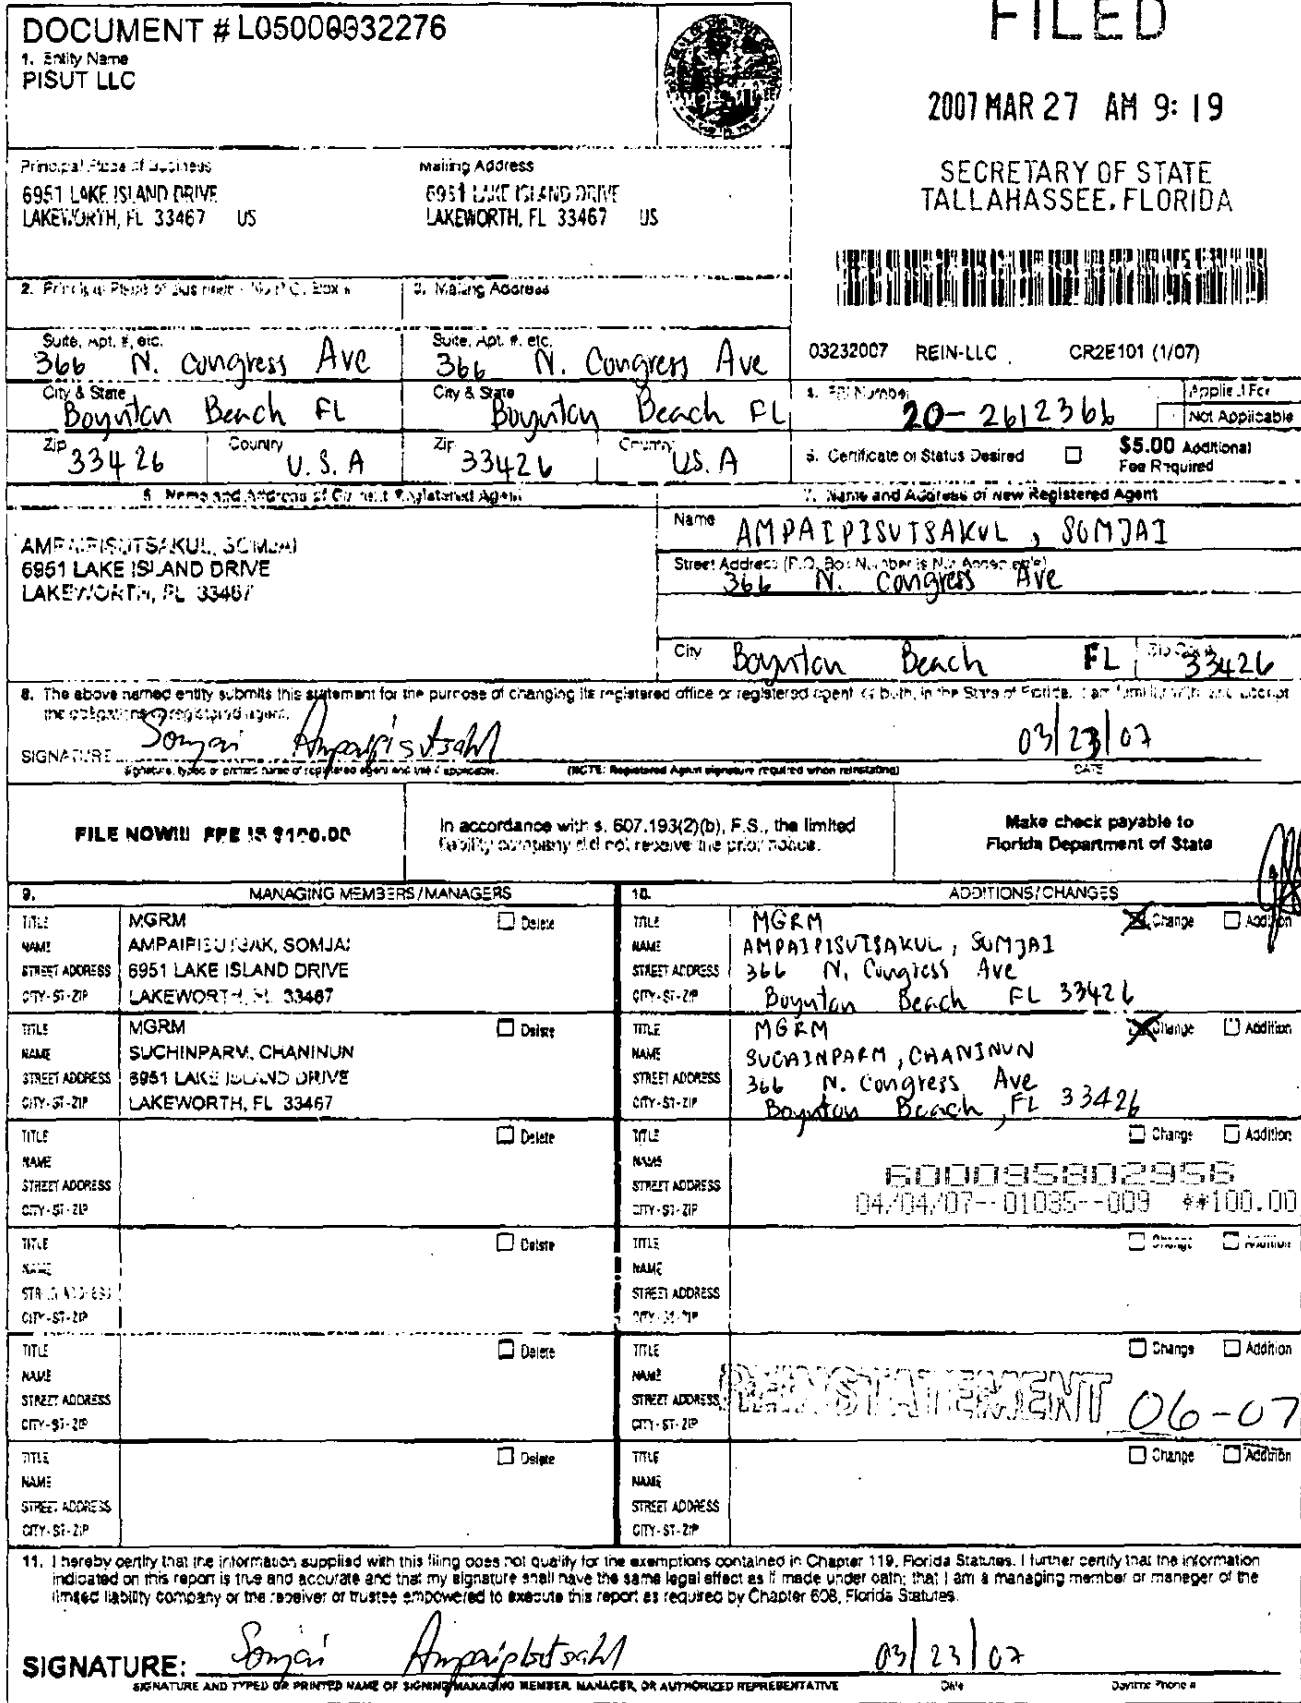 DOCUMENT # L05000032276
1. Entity Name
PISUT LLC
FILED
2007 MAR 27 AM 9: 19
SECRETARY OF STATE
TALLAHASSEE, FLORIDA
Principal Place of Business
6951 LAKE ISLAND DRIVE
LAKEWORTH, FL 33467 US
Mailing Address
6951 LAKE ISLAND DRIVE
LAKEWORTH, FL 33467 US
2. Principal Place of Business - No P.O. Box #
3. Mailing Address
Suite, Apt. #, etc.
366 N. Congress Ave
Suite, Apt. #, etc.
366 N. Congress Ave
03232007 REIN-LLC CR2E101 (1/07)
City & State
Boynton Beach FL
City & State
Boynton Beach FL
4. FEI Number
20-2612366
Applied For
Not Applicable
Zip
33426
Country
U.S.A
Zip
33426
Country
U.S.A
5. Certificate of Status Desired
$5.00 Additional
Fee Required
6. Name and Address of Current Registered Agent
AMPAIPISUTSAKUL, SOMJAI
6951 LAKE ISLAND DRIVE
LAKEWORTH, FL 33467
7. Name and Address of New Registered Agent
Name AMPAIPISUTSAKUL, SOMJAI
Street Address (P.O. Box Number is Not Acceptable)
366 N. Congress Ave
City Boynton Beach FL Zip Code 33426
8. The above named entity submits this statement for the purpose of changing its registered office or registered agent, or both, in the State of Florida. I am familiar with, and accept
the obligations of registered agent.
SIGNATURE Somjai Ampaipisutsakul 03/23/07
Signature, typed or printed name of registered agent and title if applicable. (NOTE: Registered Agent signature required when reinstating) DATE
FILE NOW!!! FEE IS $100.00
In accordance with s. 607.193(2)(b), F.S., the limited
liability company did not receive the prior notice.
Make check payable to
Florida Department of State
9. MANAGING MEMBERS/MANAGERS
TITLE MGRM Delete
NAME AMPAIPISUTSAK, SOMJAI
STREET ADDRESS 6951 LAKE ISLAND DRIVE
CITY-ST-ZIP LAKEWORTH, FL 33467
TITLE MGRM Delete
NAME SUCHINPARM, CHANINUN
STREET ADDRESS 6951 LAKE ISLAND DRIVE
CITY-ST-ZIP LAKEWORTH, FL 33467
TITLE Delete
NAME
STREET ADDRESS
CITY-ST-ZIP
TITLE Delete
NAME
STREET ADDRESS
CITY-ST-ZIP
TITLE Delete
NAME
STREET ADDRESS
CITY-ST-ZIP
TITLE Delete
NAME
STREET ADDRESS
CITY-ST-ZIP
10. ADDITIONS/CHANGES
TITLE MGRM Change Addition
NAME AMPAIPISUTSAKUL, SOMJAI
STREET ADDRESS 366 N. Congress Ave
CITY-ST-ZIP Boynton Beach FL 33426
TITLE MGRM Change Addition
NAME SUCHINPARM, CHANINUN
STREET ADDRESS 366 N. Congress Ave
CITY-ST-ZIP Boynton Beach, FL 33426
TITLE Change Addition
NAME
600095802956
STREET ADDRESS
04/04/07--01035--009 **100.00
CITY-ST-ZIP
TITLE Change Addition
NAME
STREET ADDRESS
CITY-ST-ZIP
TITLE Change Addition
NAME
STREET ADDRESS
REINSTATEMENT 06-07
CITY-ST-ZIP
TITLE Change Addition
NAME
STREET ADDRESS
CITY-ST-ZIP
11. I hereby certify that the information supplied with this filing does not qualify for the exemptions contained in Chapter 119, Florida Statutes. I further certify that the information
indicated on this report is true and accurate and that my signature shall have the same legal effect as if made under oath; that I am a managing member or manager of the
limited liability company or the receiver or trustee empowered to execute this report as required by Chapter 608, Florida Statutes.
SIGNATURE: Somjai Ampaipisutsakul 03/23/07
SIGNATURE AND TYPED OR PRINTED NAME OF SIGNING MANAGING MEMBER, MANAGER, OR AUTHORIZED REPRESENTATIVE Date Daytime Phone #